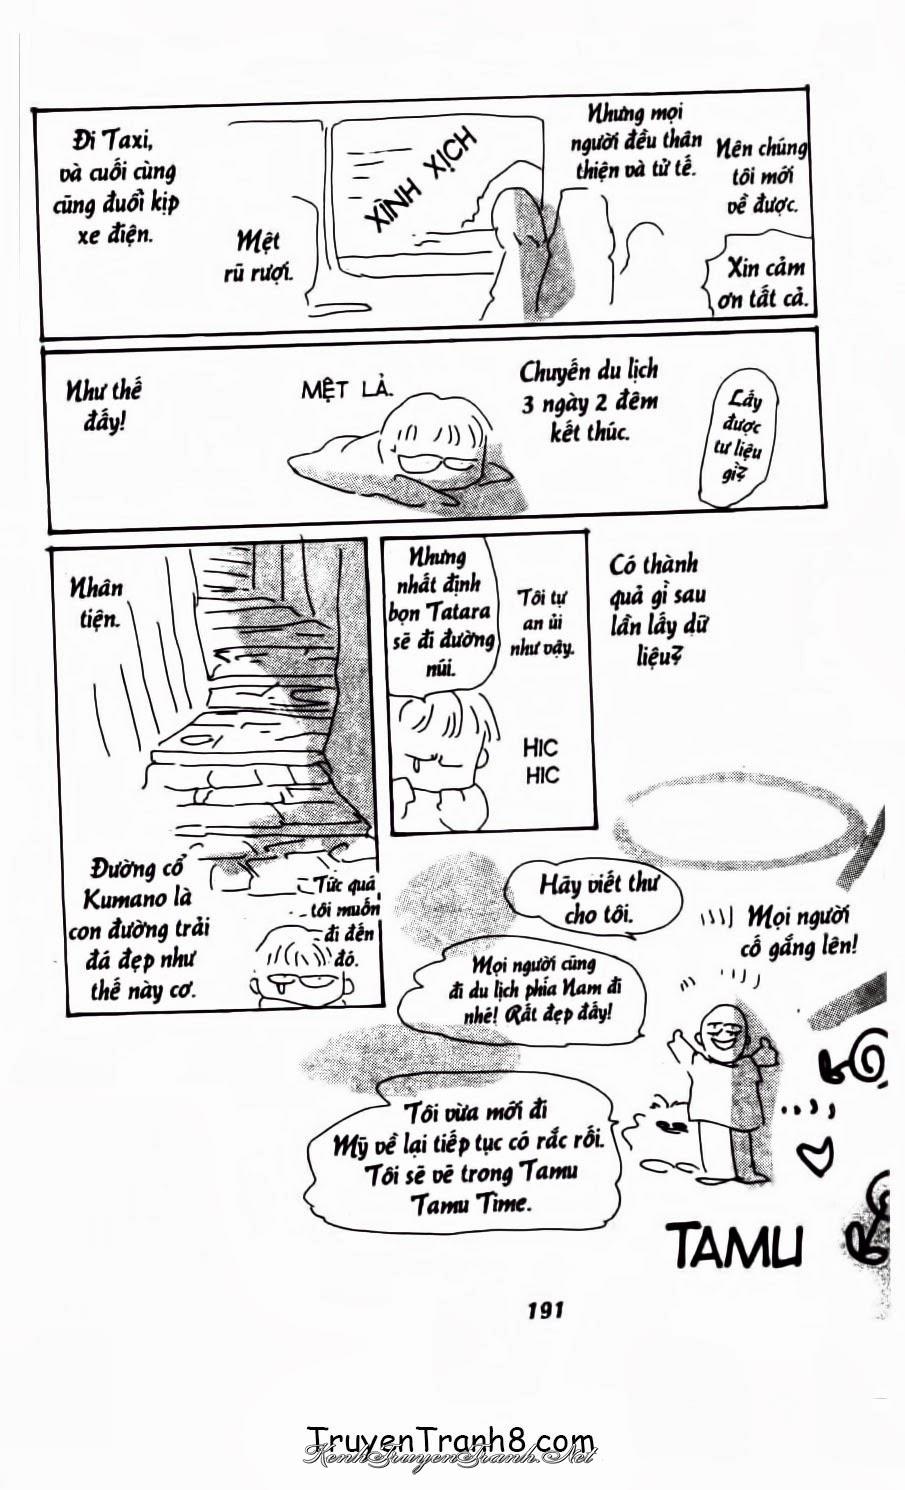 Đi Taxi,
và cuối cùng
cũng đuổi kịp
xe điện.
Mệt
rũ rượi.
XÌNH XỊCH
Nhưng mọi
người đều thân
thiện và tử tế.
Nên chúng
tôi mới
về được.
Xin cảm
ơn tất cả.
Như thế
đấy!
MỆT LẢ.
Chuyến du lịch
3 ngày 2 đêm
kết thúc.
Lấy
được
tư liệu
gì?
Nhân
tiện.
Đường cổ
Kumano là
con đường trải
đá đẹp như
thế này cơ.
Tức quá
tôi muốn
đi đến
đó.
Nhưng
nhất định
bọn Tatara
sẽ đi đường
núi.
Tôi tự
an ủi
như vậy.
HIC
HIC
Có thành
quả gì sau
lần lấy dữ
liệu?
Hãy viết thư
cho tôi.
Mọi người
cố gắng lên!
Mọi người cũng
đi du lịch phía Nam đi
nhé! Rất đẹp đấy!
Tôi vừa mới đi
Mỹ về lại tiếp tục có rắc rối.
Tôi sẽ vẽ trong Tamu
Tamu Time.
TAMU
191
TruyenTranh8.com
KenhTruyenTranh.Net